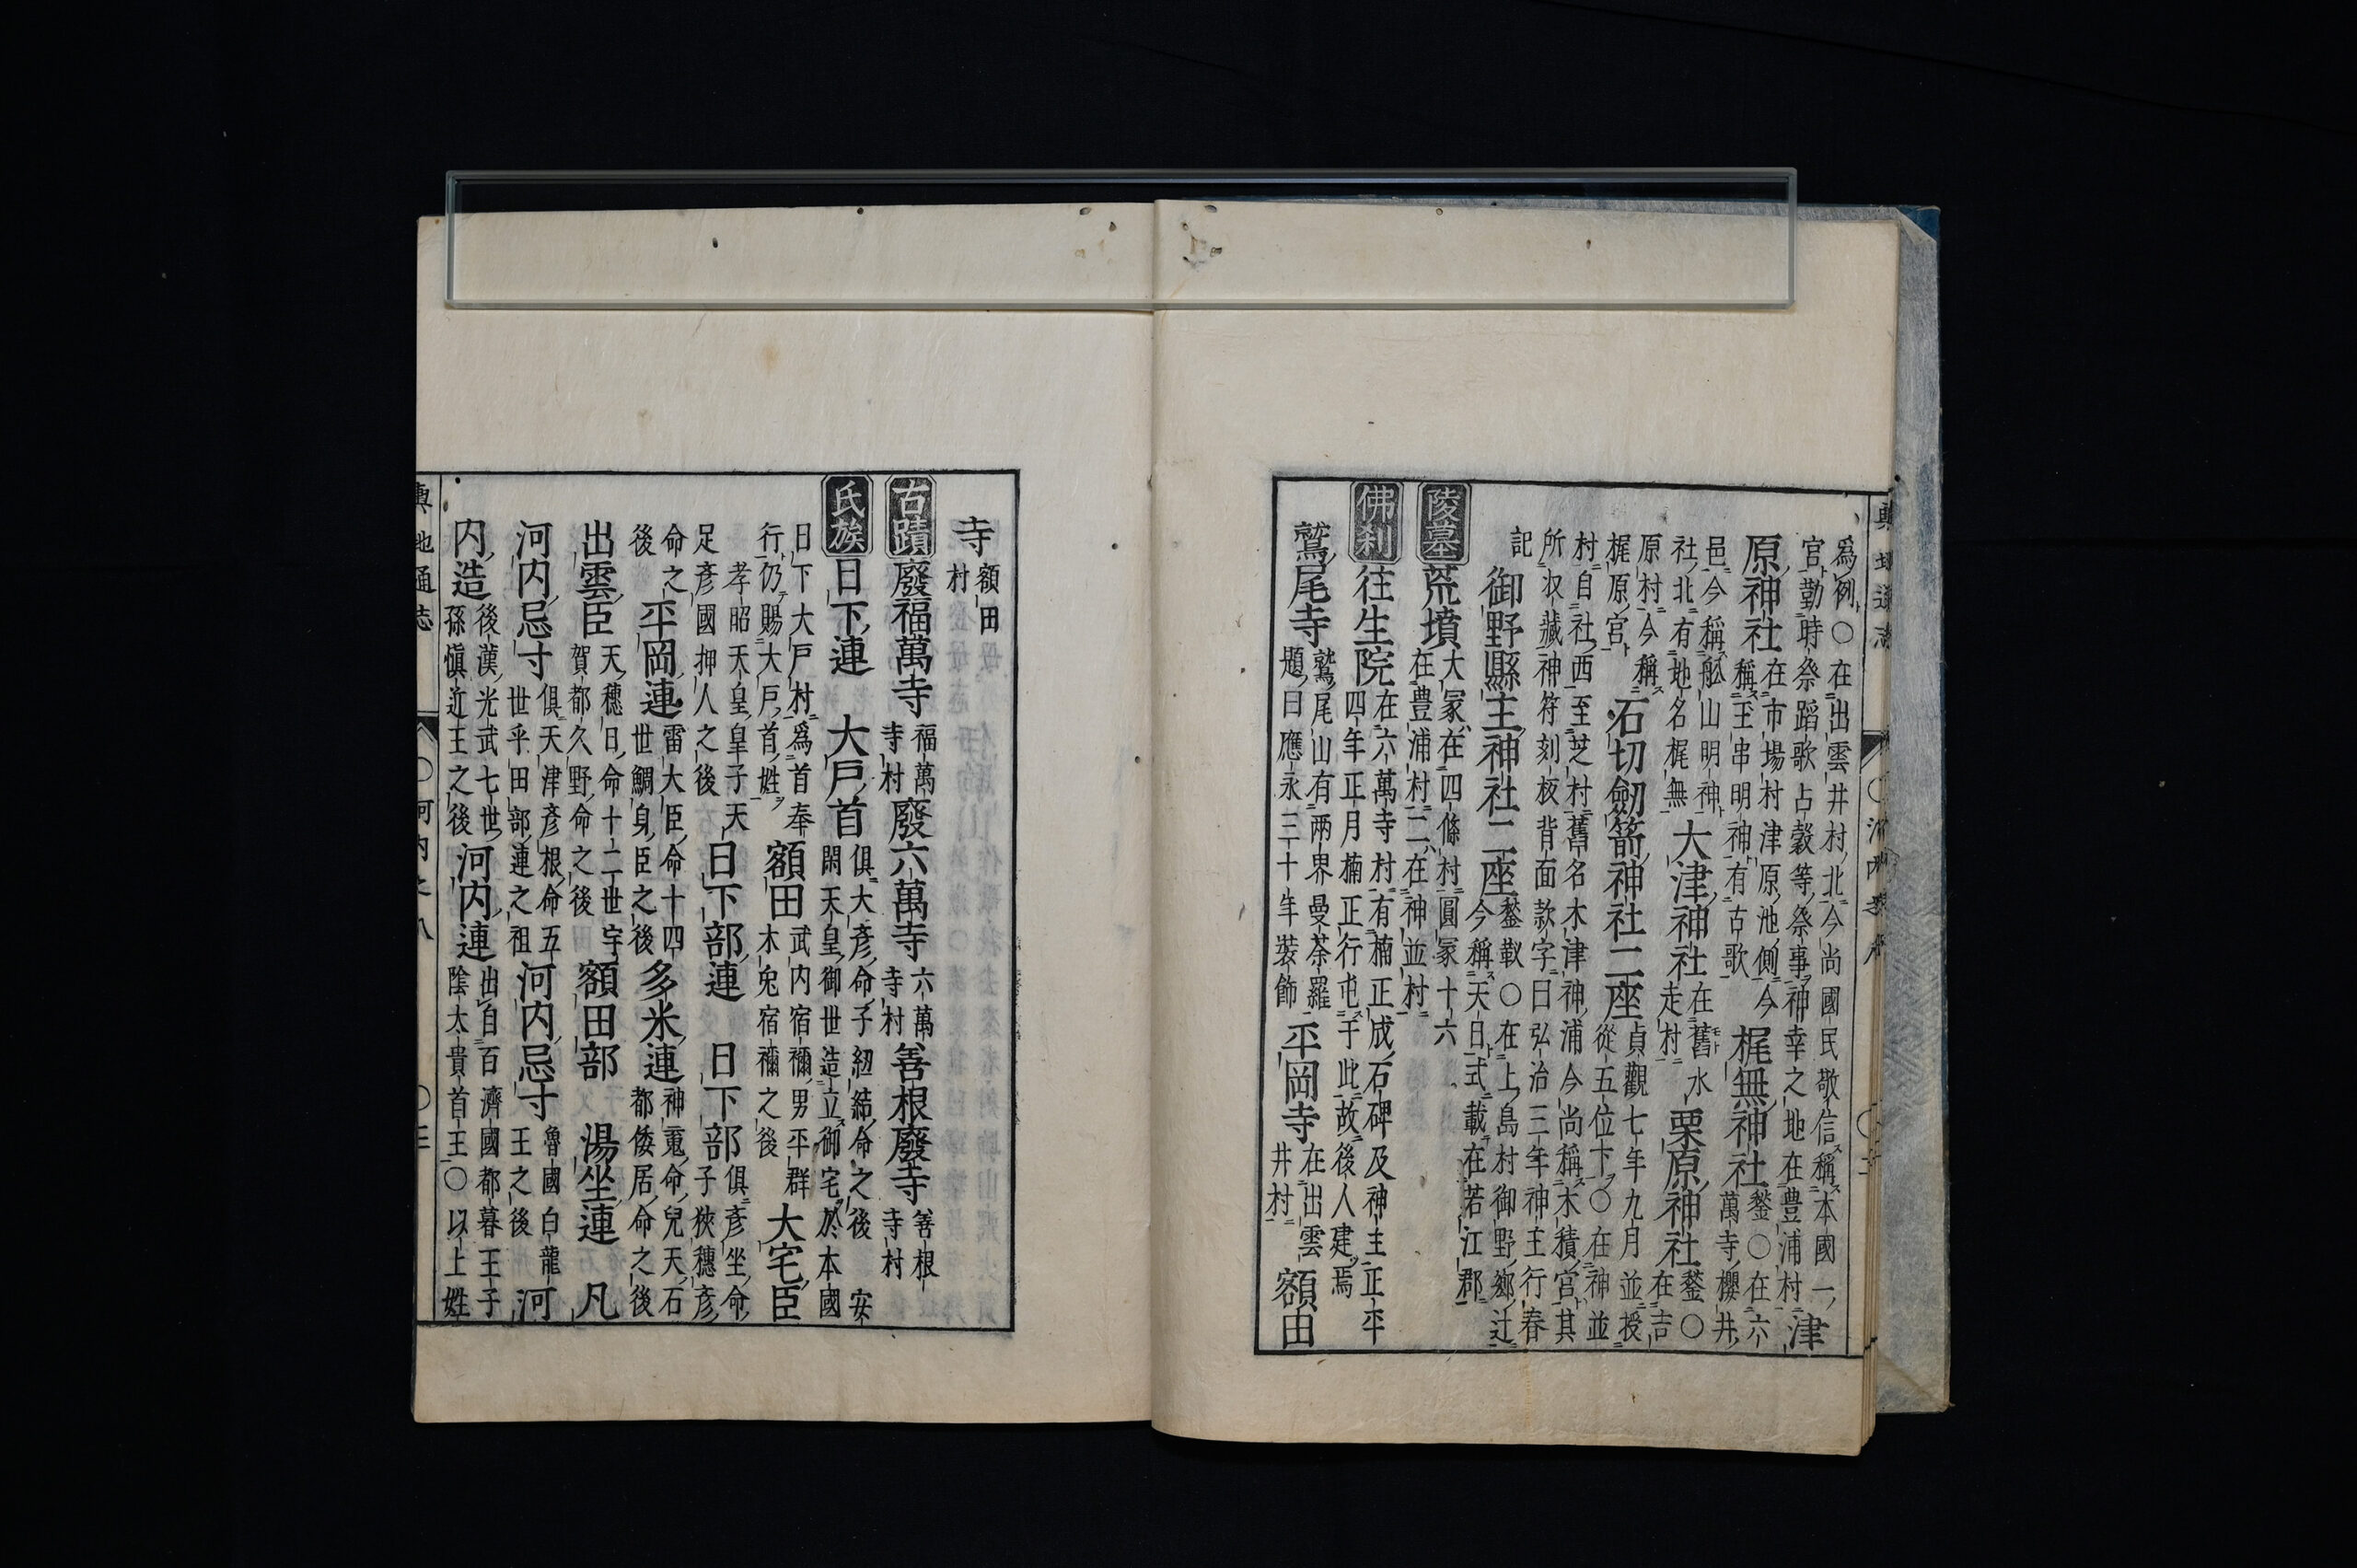 爲例○在出雲井村北今尚國民敬信稱本國一
宮勤時祭蹈歌占穀等祭事神幸之地在豊浦村
津
原神社
在市場村津原池側今
稱玉串明神有古歌
梶無神社
鍫○在六
萬寺櫻井
邑今稱舩山明神
社北有地名梶無
大津神社
在舊水
走村
栗原神社
鍫○
在吉
原村今稱
梶原宮
石切劒箭神社二座
貞觀七年九月並授
從五位下○在神並
村自社西至芝村舊名木津神浦今尚稱木積宮其
所収藏神符刻板背面款字曰弘治三年神主行春
記
御野縣主神社二座
鍫靫○在上島村御野郷辻
今稱天日式載在若江郡
陵墓
荒墳
大冢在四條村圓冢十六
在豊浦村二在神並村
佛刹
往生院
在六萬寺村有楠正成石碑及神主正平
四年正月楠正行屯于此故後人建焉
鷲尾寺
鷲尾山有兩界曼荼羅
題曰應永三十年裝飾
平岡寺
在出雲
井村
額田
寺
額田
村
古蹟
廢福萬寺
福萬
寺村
廢六萬寺
六萬
寺村
善根廢寺
善根
寺村
氏族
日下連 大戸首
俱大彦命子紐結命之後 安
閑天皇御世造立御宅於本國
日下大戸村爲首奉
行仍賜大戸首姓
額田
武内宿禰男平群
木兔宿禰之後
大宅臣
孝昭天皇皇子天
足彦國押人之後
日下部連 日下部
俱彦坐命
子狹穗彦
命之
後
平岡連
雷大臣命十四
世鯛身臣之後
多米連
神䰠命兒天石
都倭居命之後
出雲臣
天穗日命十二世宇
賀都久野命之後
額田部 湯坐連 凡
河内忌寸
俱天津彦根命五
世乎田部連之祖
河内忌寸
魯國白龍
王之後
河
内造
後漢光武七世
孫愼近王之後
河内連
出自百濟國都暮王子
陰太貴首王○以上姓
輿地通志 ○河内之八 ○三